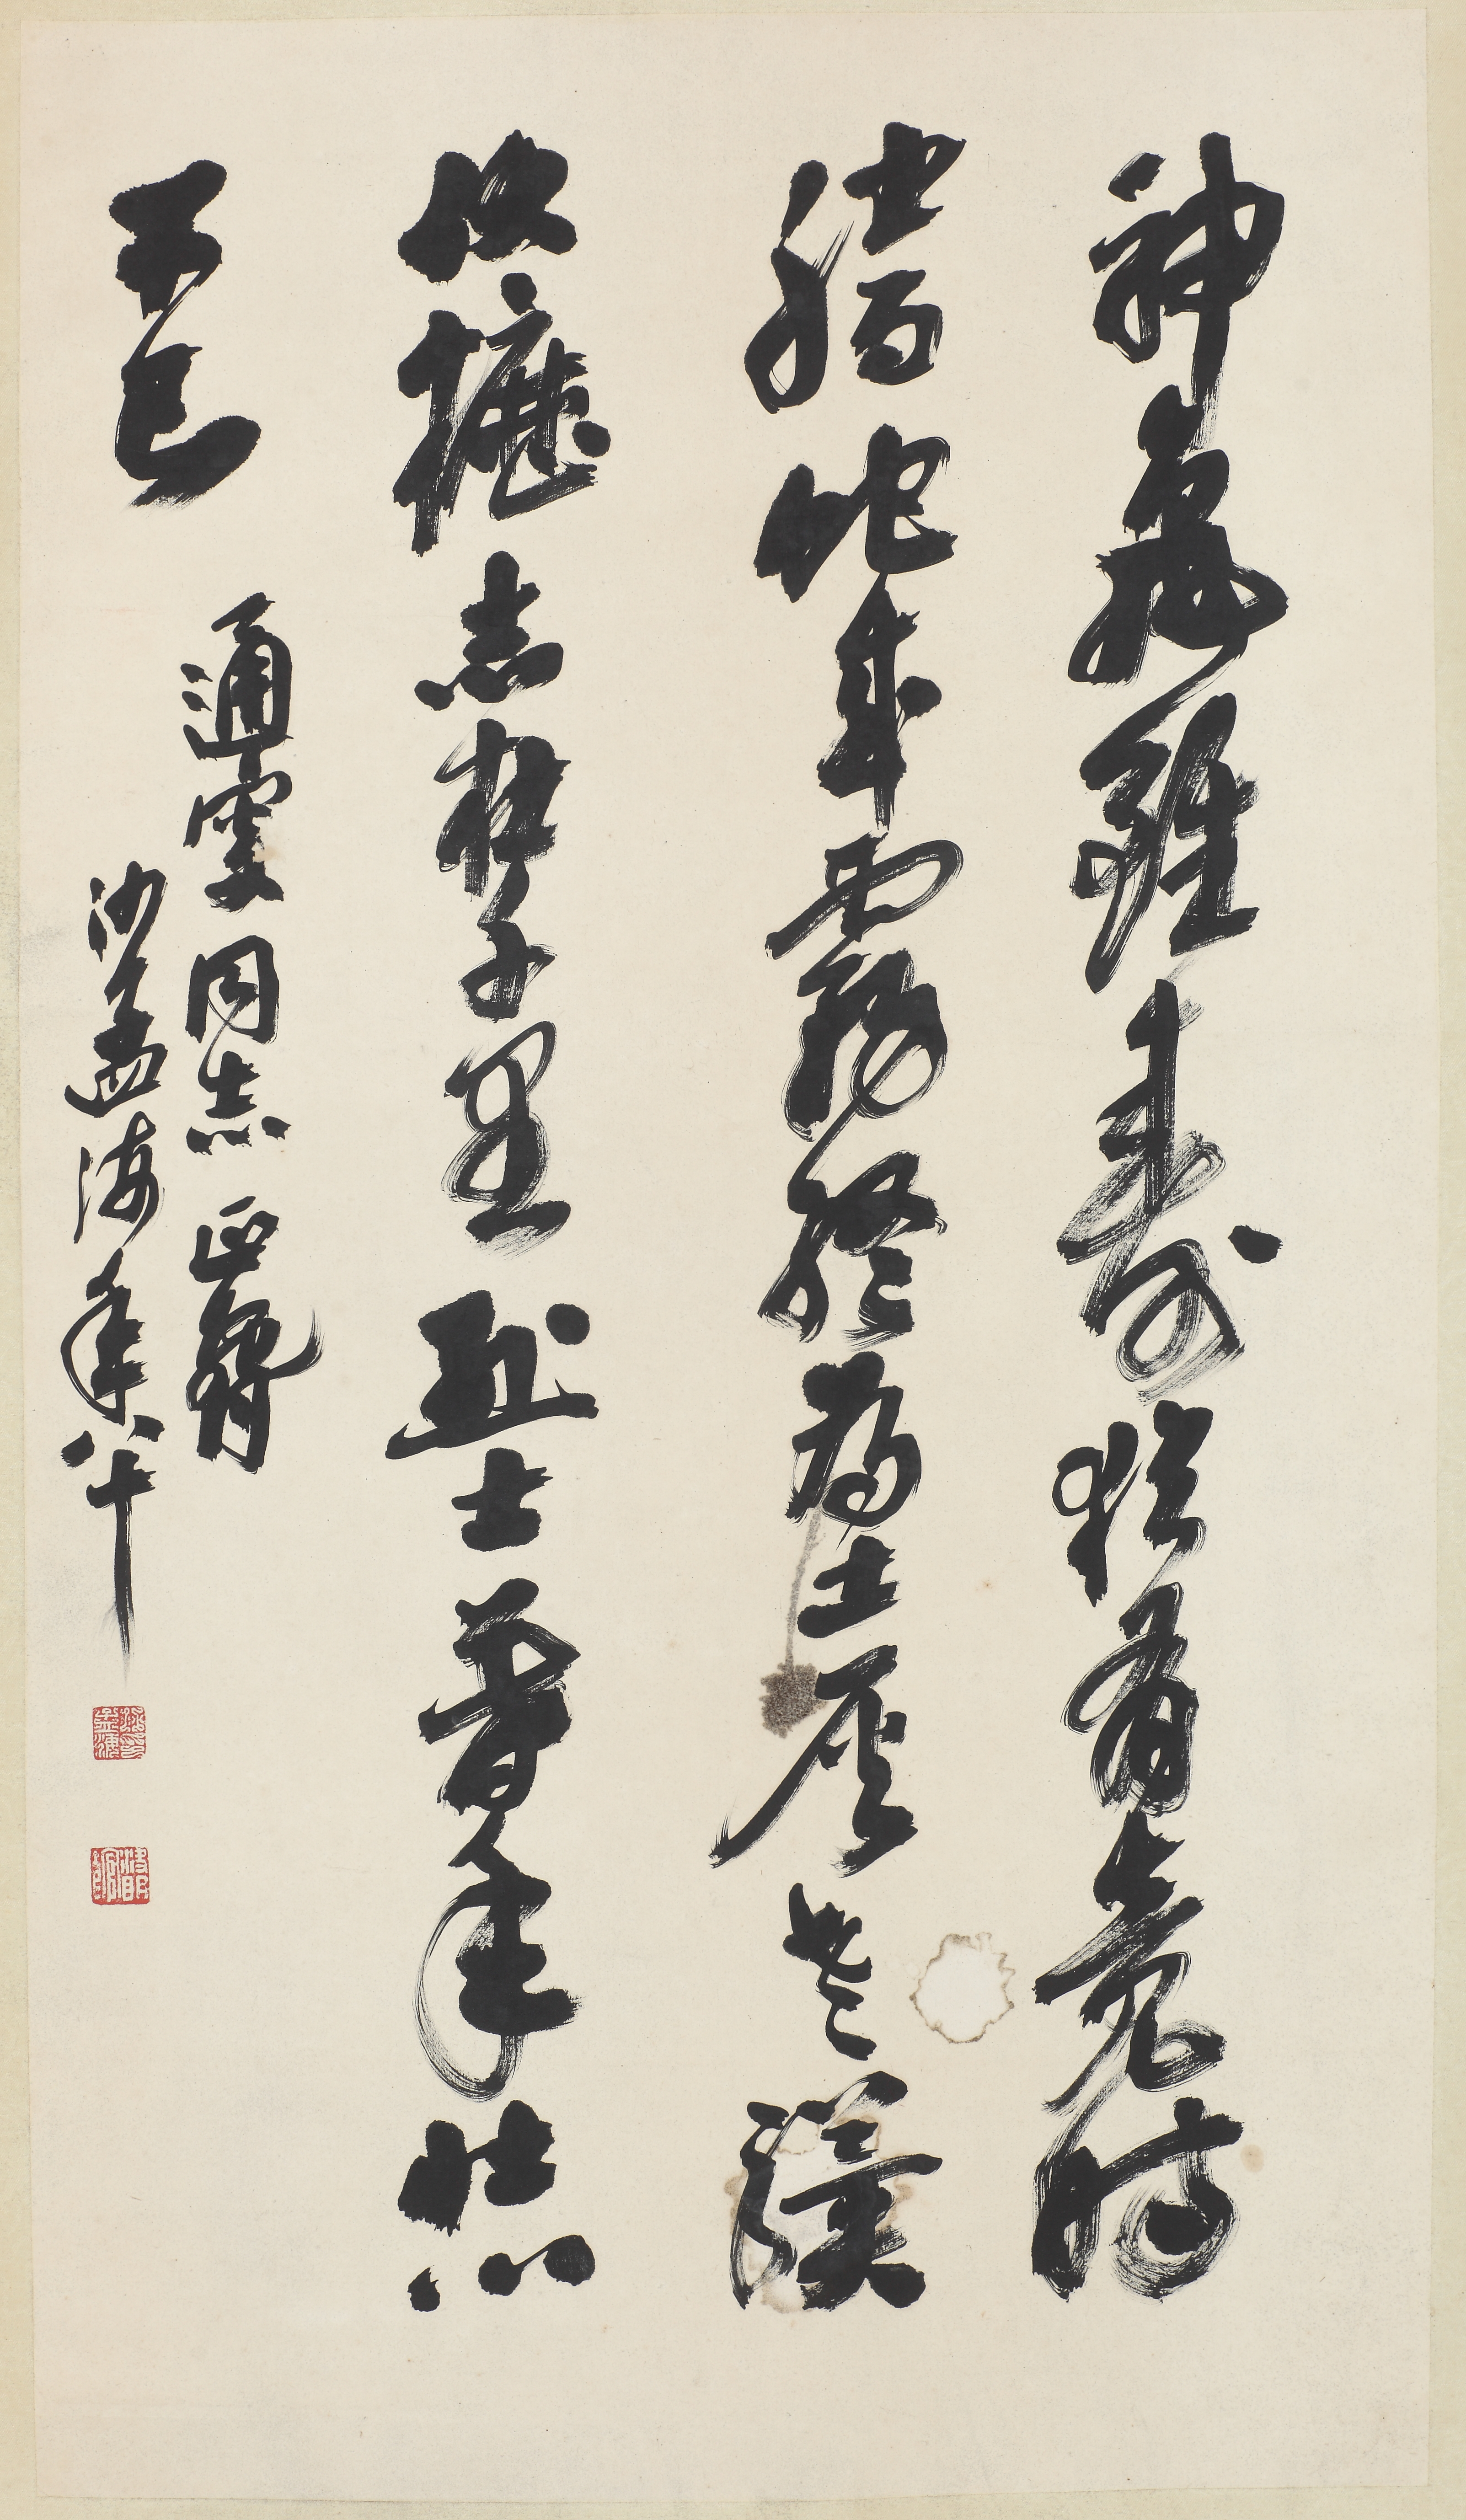 神龜雖壽猶有竟時
騰蛇乘霧終為土灰老驥
伏櫪志在千里烈士暮年壯心
不已
通雯同志正
沙孟海年八十